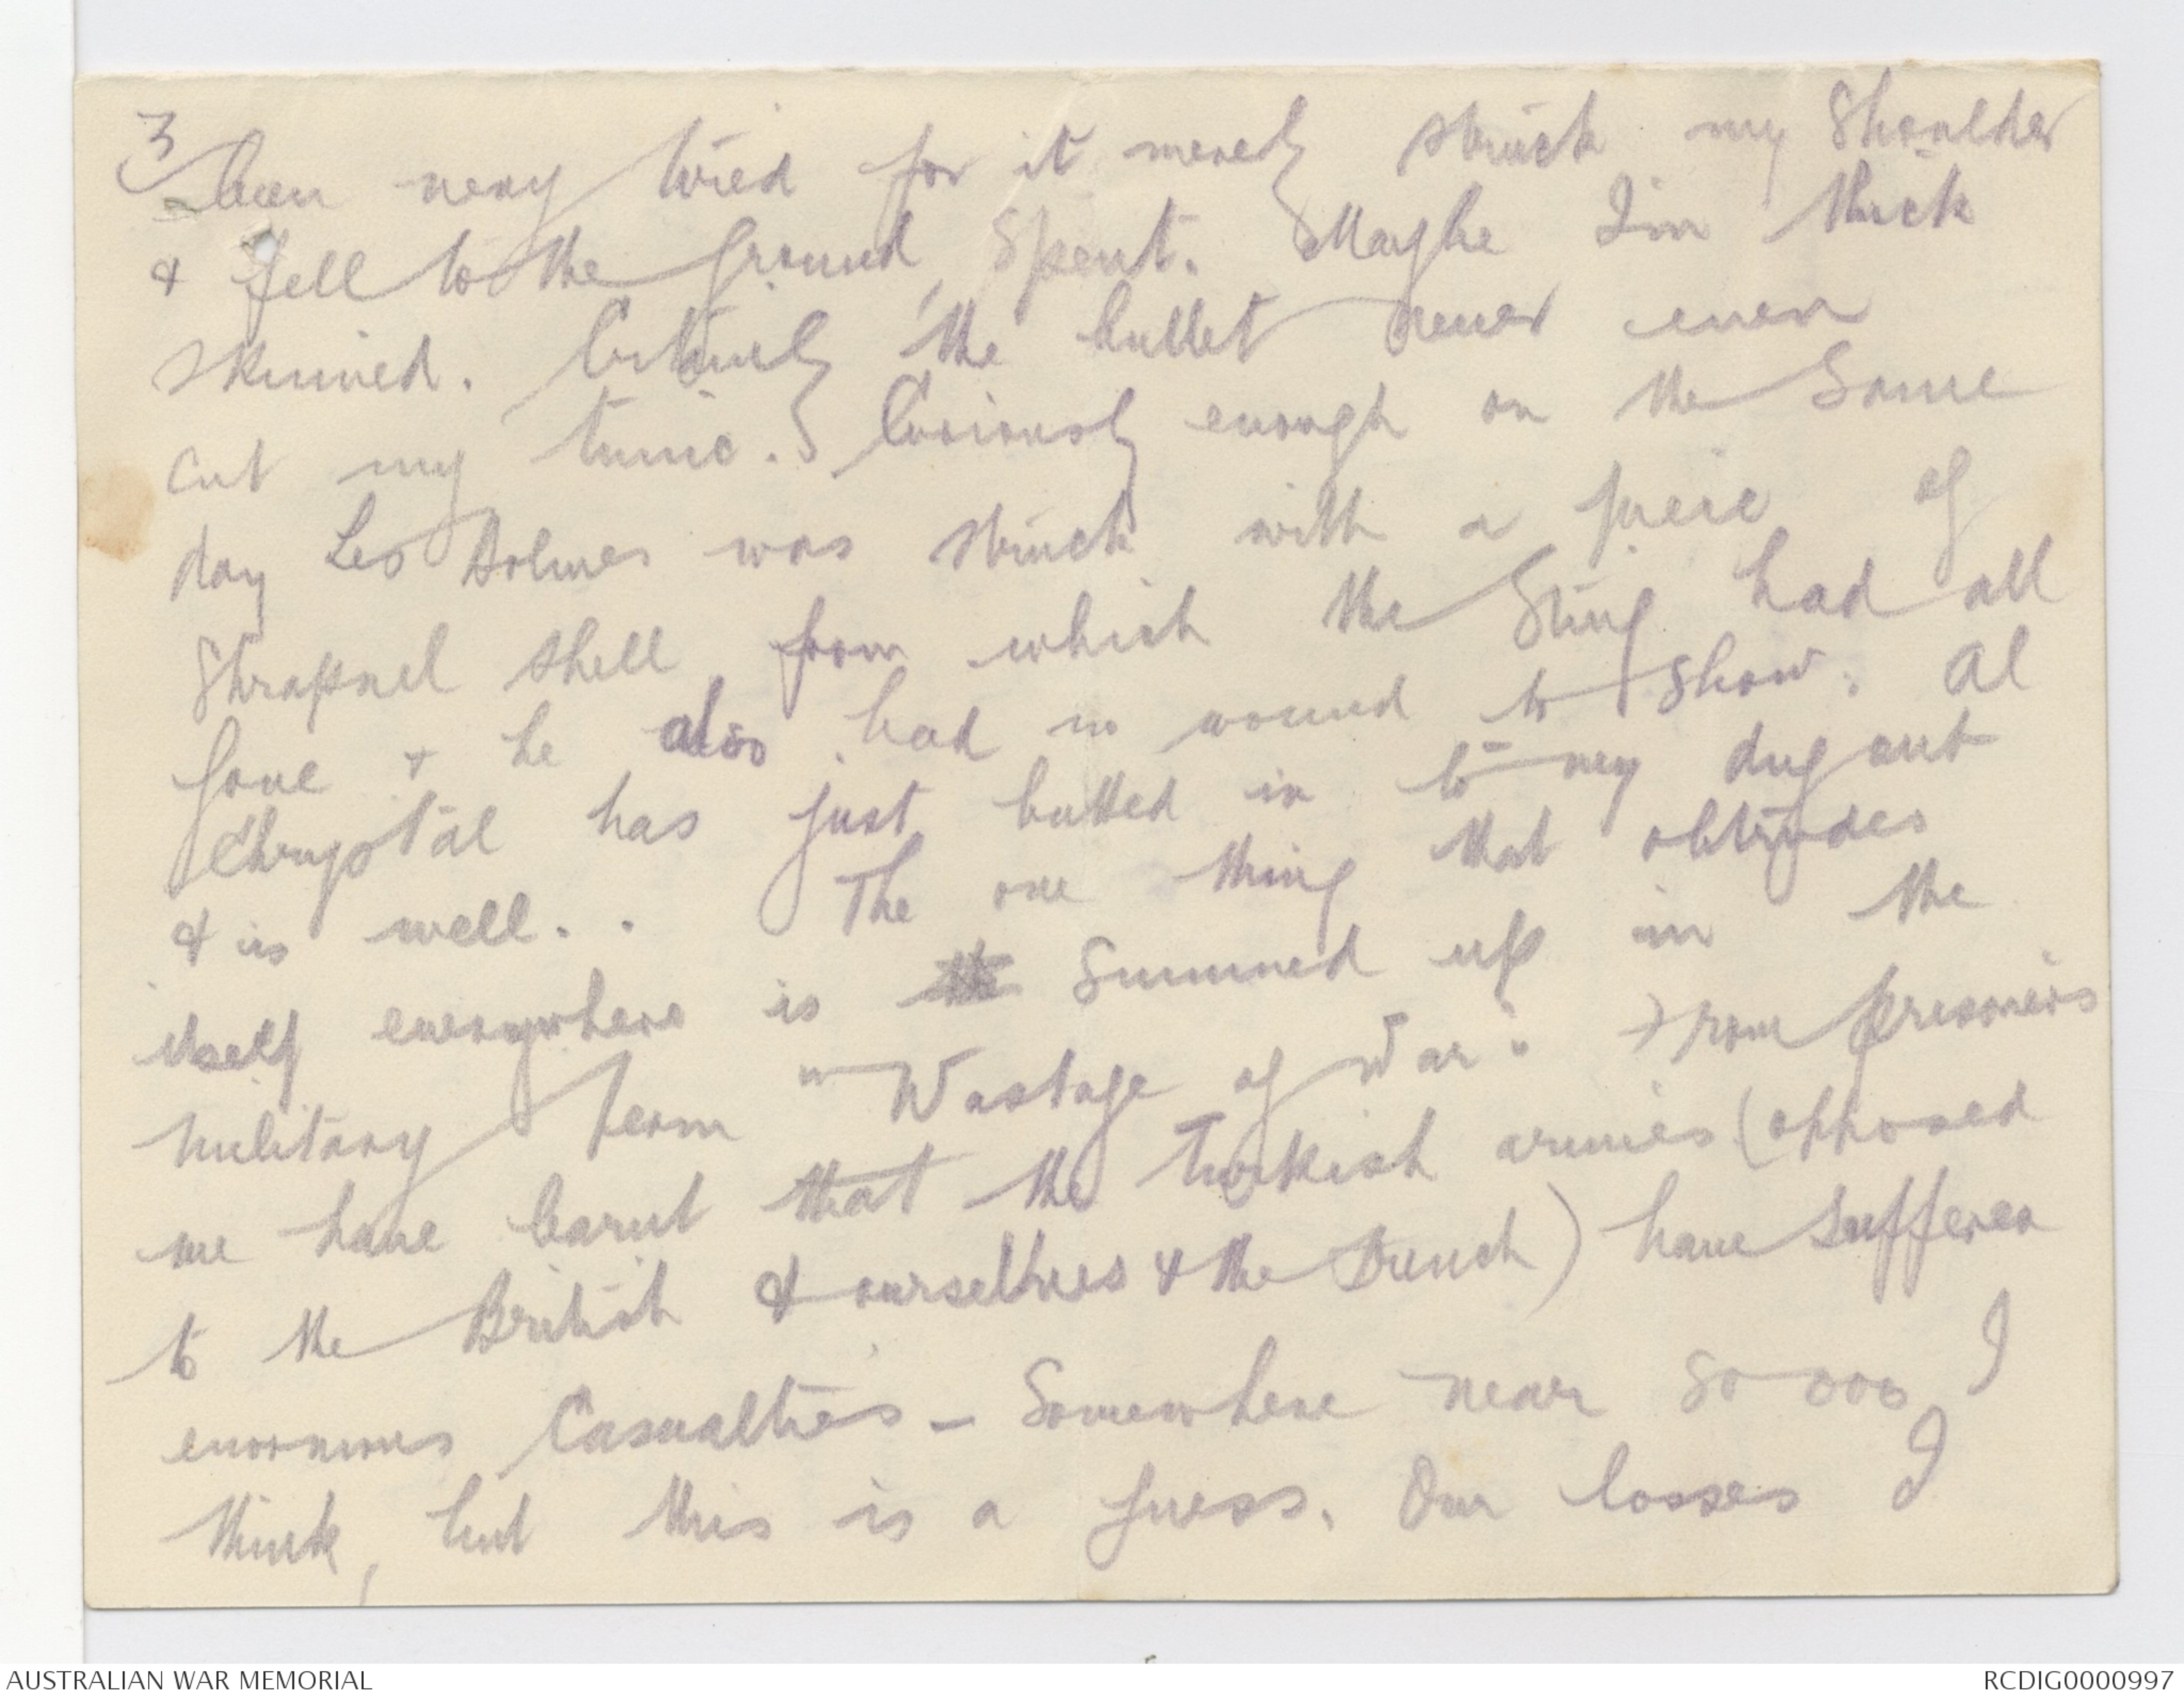 3
been very tired for it merely struck my shoulder
& fell to the ground, spent. Maybe I'm thick
skinned. Certainly the bullet never even
cut my tunic. Curiously enough on the same
day Les Holmes was struck with a piece of
Shrapnel shell from which the sting had all
gone & he also had no wound to show. Al
Chrystal has just butted in to my dug out
& is well. . The one thing that obtrudes
itself everywhere is summed up in the
military term "Wastage of War". From prisoners
we have learnt that the Turkish armies (opposed
to the British & ourselves & the French) have suffered
enormous Casualties - Somewhere near 80 000 I
think, but this is a guess. Our losses I
AUSTRALIAN WAR MEMORIAL
RCDIG0000997